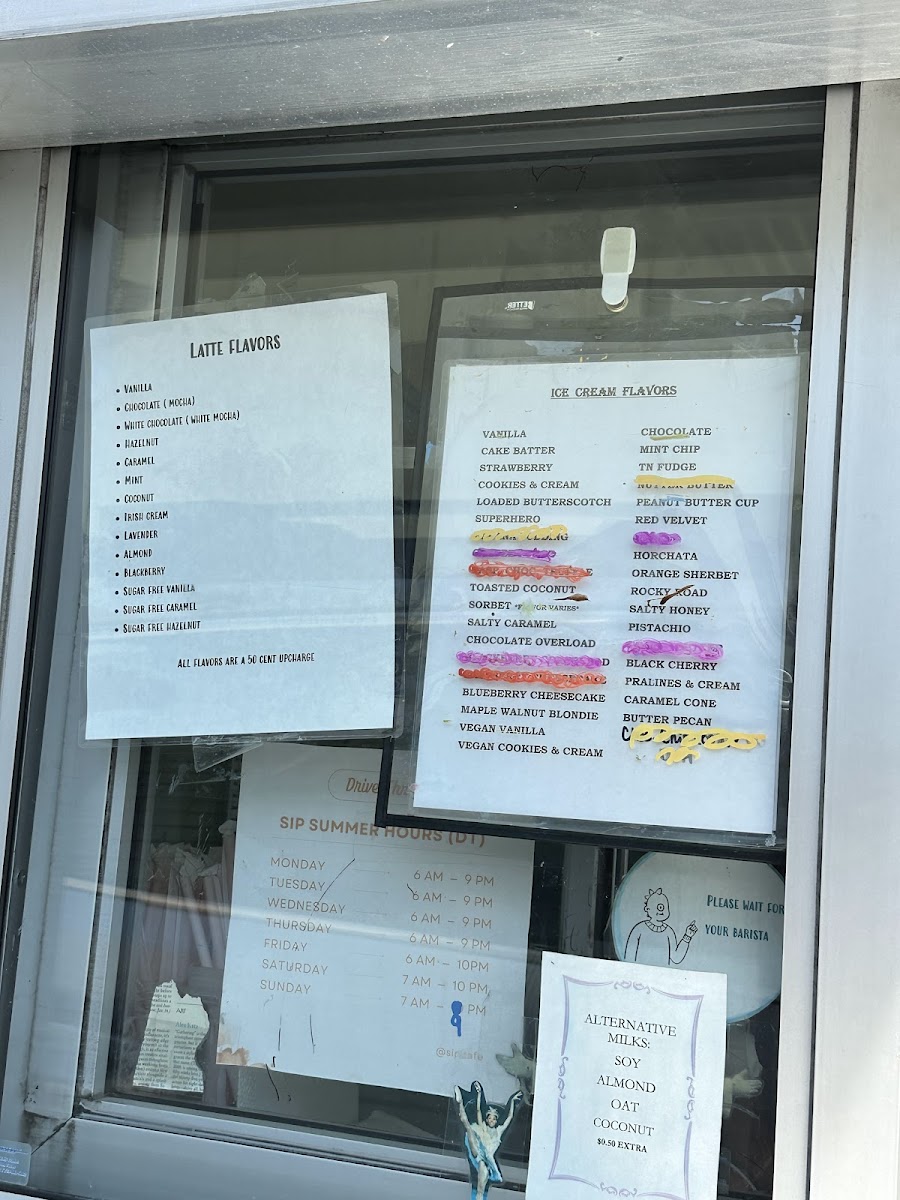 LATTE FLAVORS
• VANILLA
• CHOCOLATE ( MOCHA)
• WHITE CHOCOLATE ( WHITE MOCHA)
• HAZELNUT
• CARAMEL
• MINT
• COCONUT
• IRISH CREAM
• LAVENDER
• ALMOND
• BLACKBERRY
• SUGAR FREE VANILLA
• SUGAR FREE CARAMEL
• SUGAR FREE HAZELNUT
ALL FLAVORS ARE A 50 CENT UPCHARGE
ICE CREAM FLAVORS
VANILLA
CAKE BATTER
STRAWBERRY
COOKIES & CREAM
LOADED BUTTERSCOTCH
SUPERHERO
TOASTED COCONUT
SORBET *FLAVOR VARIES*
SALTY CARAMEL
CHOCOLATE OVERLOAD
BLUEBERRY CHEESECAKE
MAPLE WALNUT BLONDIE
VEGAN VANILLA
VEGAN COOKIES & CREAM
CHOCOLATE
MINT CHIP
TN FUDGE
NUTTER BUTTER
PEANUT BUTTER CUP
RED VELVET
HORCHATA
ORANGE SHERBET
ROCKY ROAD
SALTY HONEY
PISTACHIO
BLACK CHERRY
PRALINES & CREAM
CARAMEL CONE
BUTTER PECAN
Drive Thru
SIP SUMMER HOURS (DT)
MONDAY 6 AM – 9 PM
TUESDAY 6 AM – 9 PM
WEDNESDAY 6 AM – 9 PM
THURSDAY 6 AM – 9 PM
FRIDAY 6 AM – 10PM
SATURDAY 7 AM – 10 PM
SUNDAY 7 AM – 9 PM
@sip.cafe
PLEASE WAIT FOR
YOUR BARISTA
ALTERNATIVE
MILKS:
SOY
ALMOND
OAT
COCONUT
$0.50 EXTRA